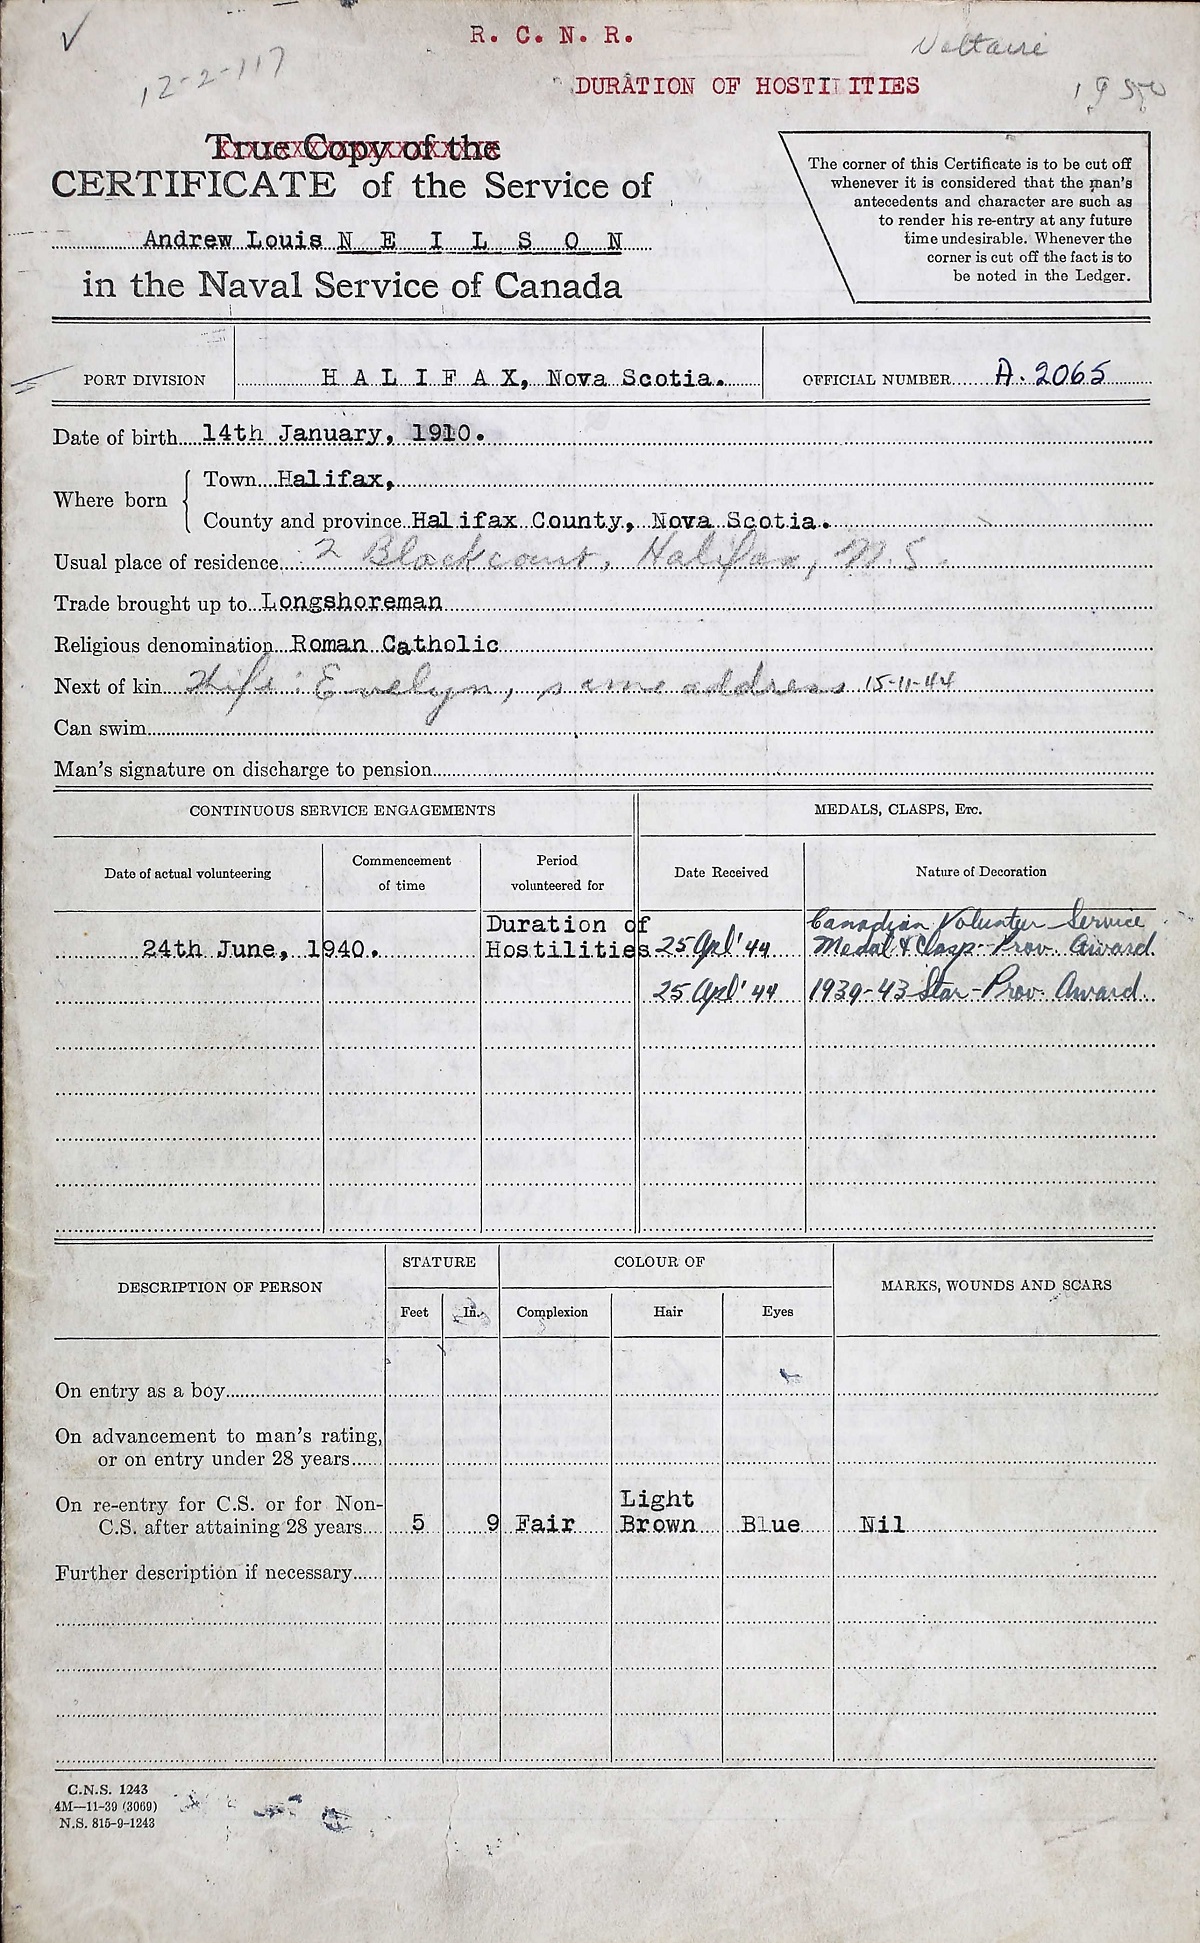 R. C. N. R.
Voltaire
12-2-117
DURATION OF HOSTILITIES
1950
True Copy of the
CERTIFICATE of the Service of
Andrew Louis N E I L S O N
in the Naval Service of Canada
The corner of this Certificate is to be cut off
whenever it is considered that the man's
antecedents and character are such as
to render his re-entry at any future
time undesirable. Whenever the
corner is cut off the fact is to
be noted in the Ledger.
PORT DIVISION H A L I F A X, Nova Scotia. OFFICIAL NUMBER A. 2065
Date of birth 14th January, 1910.
Where born
Town Halifax,
County and province Halifax County, Nova Scotia.
Usual place of residence 2 Blockcourt, Halifax, N.S.
Trade brought up to Longshoreman
Religious denomination Roman Catholic
Next of kin Wife: Evelyn, same address 15-11-44
Can swim
Man's signature on discharge to pension
CONTINUOUS SERVICE ENGAGEMENTS MEDALS, CLASPS, ETC.
Date of actual volunteering Commencement of time Period volunteered for Date Received Nature of Decoration
24th June, 1940. Duration of Hostilities 25 Apl' 44 Canadian Volunteer Service Medal & Clasp - Prov. Award.
25 Apl' 44 1939-43 Star - Prov. Award.
DESCRIPTION OF PERSON STATURE COLOUR OF MARKS, WOUNDS AND SCARS
Feet In. Complexion Hair Eyes
On entry as a boy
On advancement to man's rating,
or on entry under 28 years
On re-entry for C.S. or for Non-
C.S. after attaining 28 years 5 9 Fair Light Brown Blue Nil
Further description if necessary
C.N.S. 1243
4M—11-39 (3069)
N.S. 815-9-1243